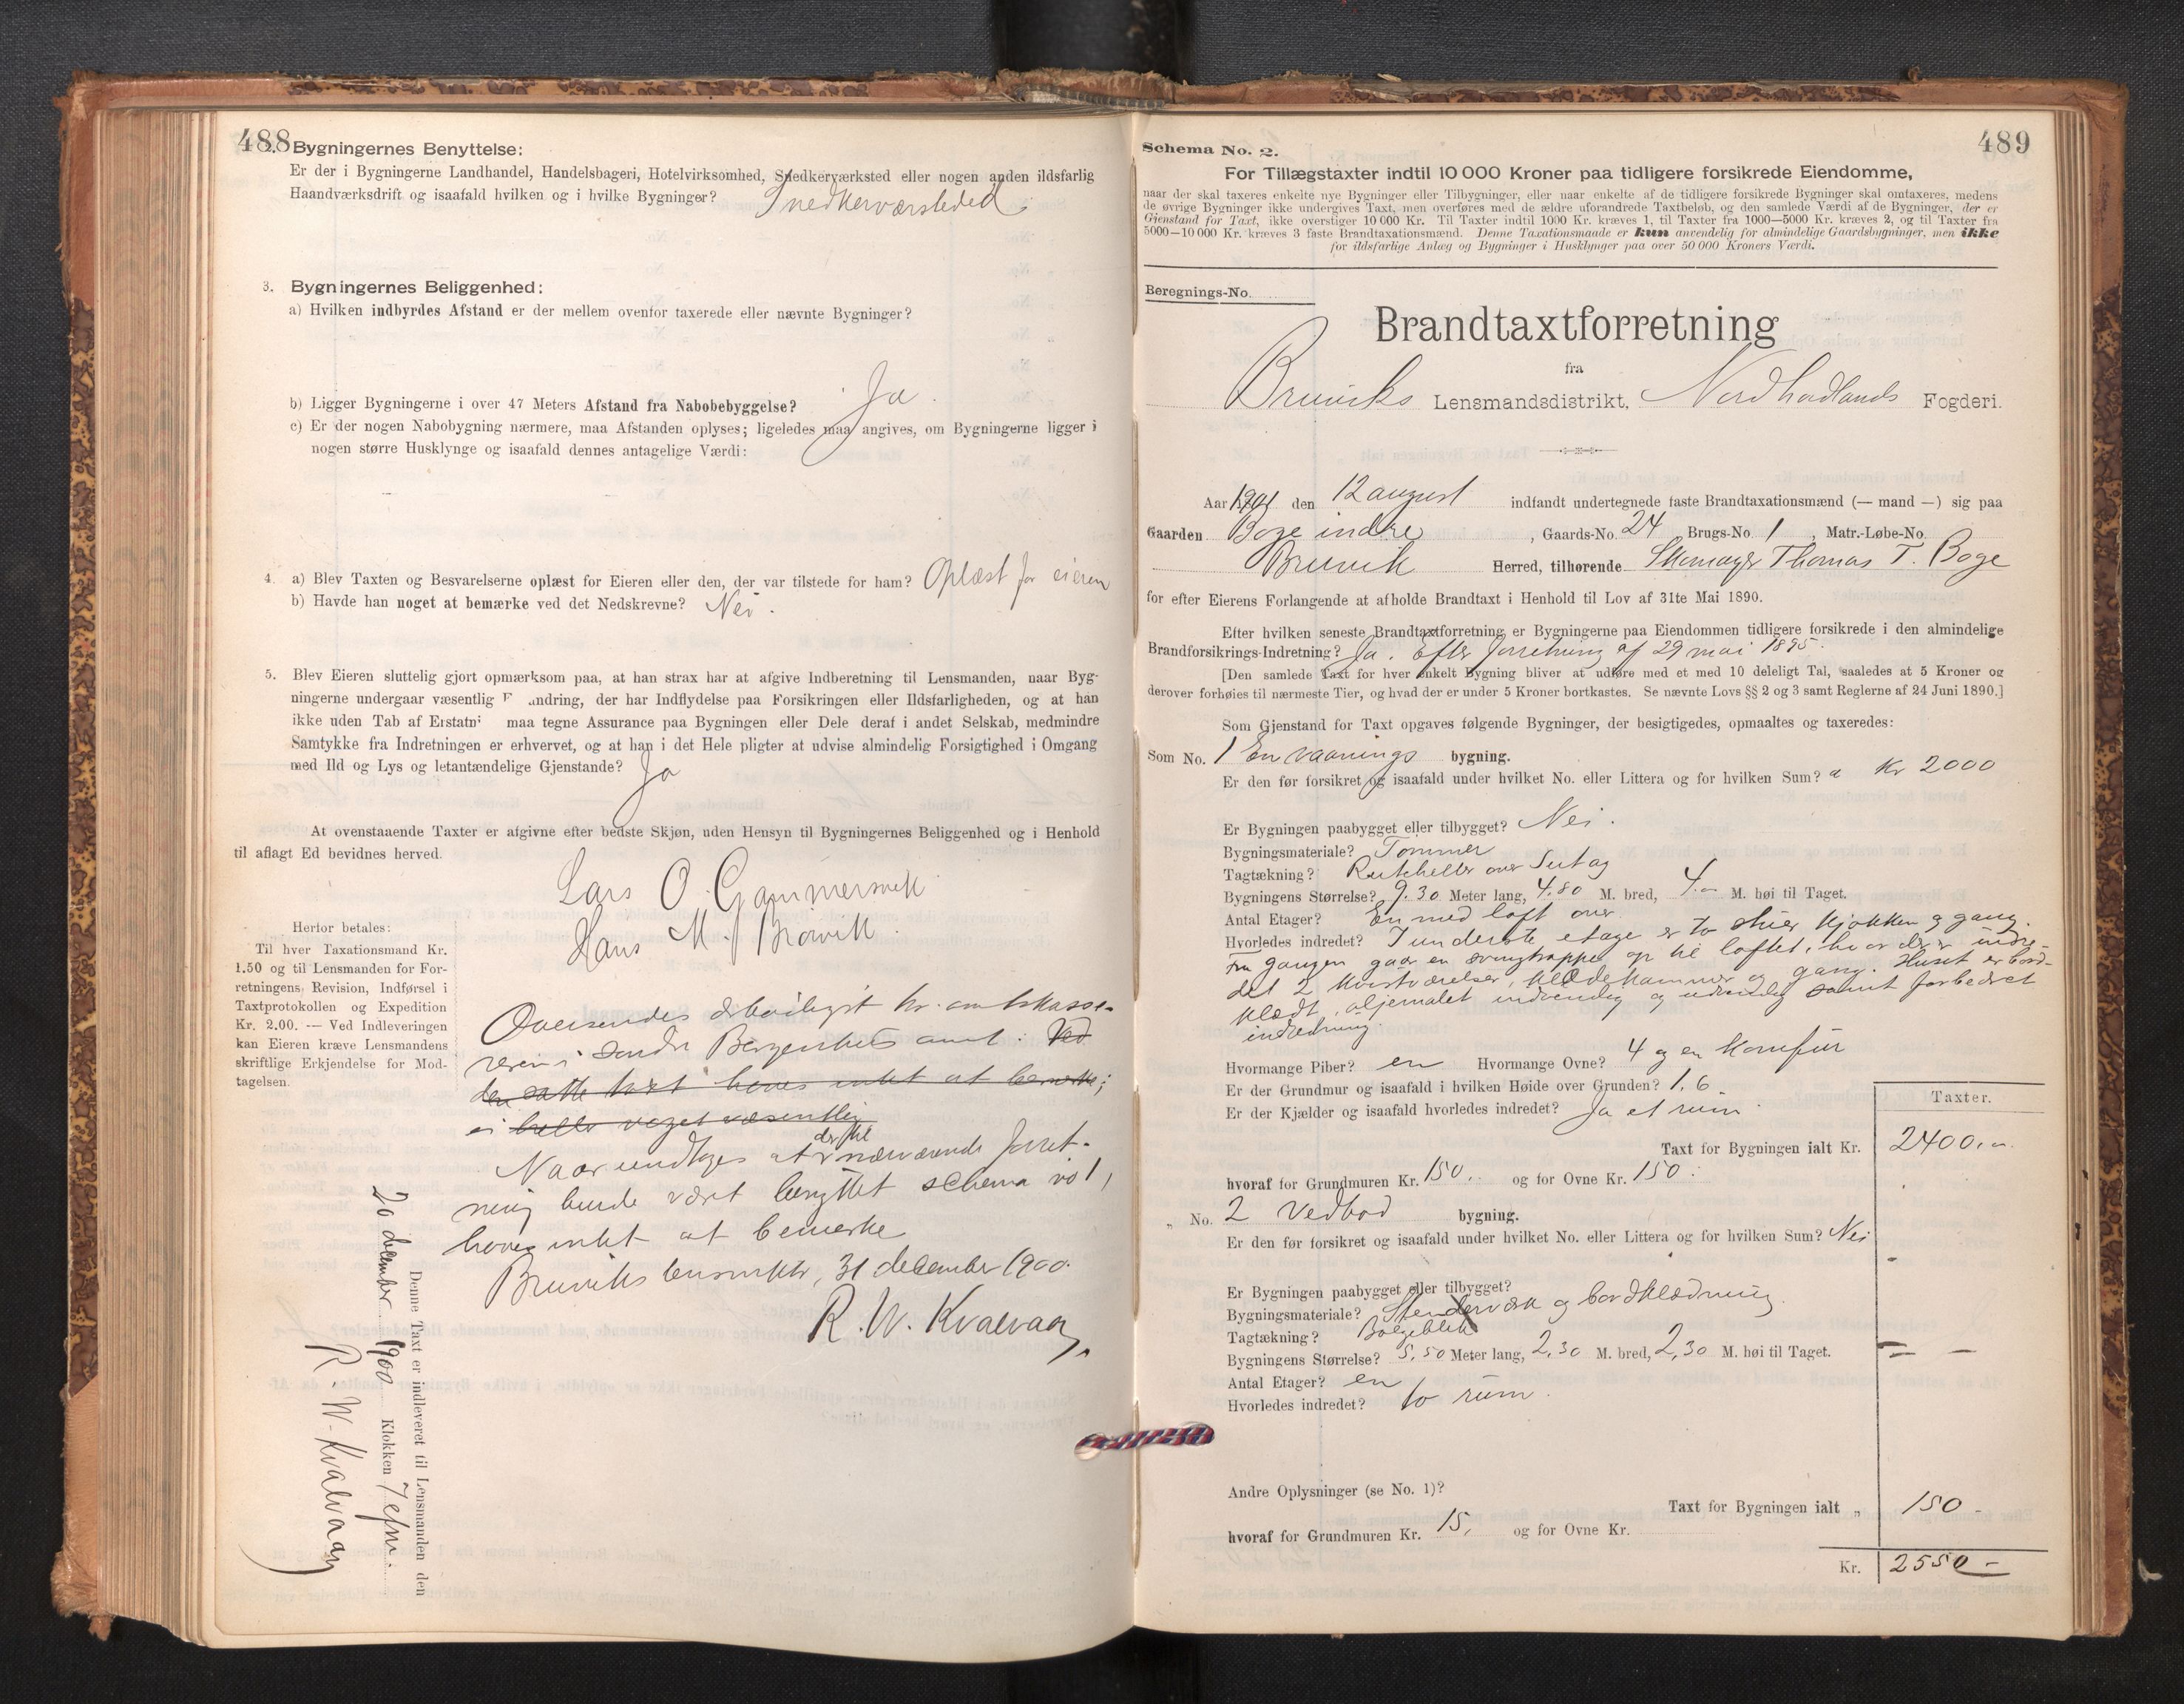 488
2. Bygningernes Benyttelse:
Er der i Bygningerne Landhandel, Handelsbageri, Hotelvirksomhed, Snedkerværksted eller nogen anden ildsfarlig
Haandværksdrift og isaafald hvilken og i hvilke Bygninger? Snedkerværsteded
3. Bygningernes Beliggenhed:
a) Hvilken indbyrdes Afstand er der mellem ovenfor taxerede eller nævnte Bygninger?
b) Ligger Bygningerne i over 47 Meters Afstand fra Nabobebyggelse? Ja.
c) Er der nogen Nabobygning nærmere, maa Afstanden oplyses; ligeledes maa angives, om Bygningerne ligger i
nogen større Husklynge og isaafald dennes antagelige Værdi:
4. a) Blev Taxten og Besvarelserne oplæst for Eieren eller den, der var tilstede for ham? Oplæst for eieren
b) Havde han noget at bemærke ved det Nedskrevne? Nei.
5. Blev Eieren sluttelig gjort opmærksom paa, at han strax har at afgive Indberetning til Lensmanden, naar Byg-
ningerne undergaar væsentlig F andring, der har Indflydelse paa Forsikringen eller Ildsfarligheden, og at han
ikke uden Tab af Erstatni maa tegne Assurance paa Bygningen eller Dele deraf i andet Selskab, medmindre
Samtykke fra Indretningen er erhvervet, og at han i det Hele pligter at udvise almindelig Forsigtighed i Omgang
med Ild og Lys og letantændelige Gjenstande? Ja
At ovenstaaende Taxter er afgivne efter bedste Skjøn, uden Hensyn til Bygningernes Beliggenhed og i Henhold
til aflagt Ed bevidnes herved.
Lars O. Gammersvik
Hans M. Brørvik
Herfor betales:
Til hver Taxationsmand Kr.
1.50 og til Lensmanden for For-
retningens Revision, Indførsel i
Taxtprotokollen og Expedition
Kr. 2.00. — Ved Indleveringen
kan Eieren kræve Lensmandens
skriftlige Erkjendelse for Mod-
tagelsen.
Oversendes ærbødigst hr. amtskasse-
reren i Søndre Bergenhus amt. Ved
den satte taxt haves intet at bemærke;
ei heller noget væsentlig
Naar undtages at der til nærværende forret-
ning burde været benyttet schema no 1,
haves intet at bemærke
Bruviks lensmktr, 31 december 1900.
R. W. Kvalvaag
Denne Taxt er indleveret til Lensmanden den
20 december 1900 Klokken 7 efm.
R. W. Kvalvaag
489
Schema No. 2.
For Tillægstaxter indtil 10 000 Kroner paa tidligere forsikrede Eiendomme,
naar der skal taxeres enkelte nye Bygninger eller Tilbygninger, eller naar enkelte af de tidligere forsikrede Bygninger skal omtaxeres, medens
de øvrige Bygninger ikke undergives Taxt, men overføres med de ældre uforandrede Taxtbeløb, og den samlede Værdi af de Bygninger, der er
Gjenstand for Taxt, ikke overstiger 10 000 Kr. Til Taxter indtil 1000 Kr. kræves 1, til Taxter fra 1000—5000 Kr. kræves 2, og til Taxter fra
5000—10 000 Kr. kræves 3 faste Brandtaxationsmænd. Denne Taxationsmaade er kun anvendelig for almindelige Gaardsbygninger, men ikke
for ildsfarlige Anlæg og Bygninger i Husklynger paa over 50 000 Kroners Værdi.
Beregnings-No.
Brandtaxtforretning
fra
Bruviks Lensmandsdistrikt, Nordhordlands Fogderi.
Aar 1901 den 12 august indfandt undertegnede faste Brandtaxationsmænd (— mand —) sig paa
Gaarden Boge indre, Gaards-No. 24 Brugs-No. 1, Matr.-Løbe-No.
Bruvik Herred, tilhørende Skomager Thomas T. Boge
for efter Eierens Forlangende at afholde Brandtaxt i Henhold til Lov af 31te Mai 1890.
Efter hvilken seneste Brandtaxtforretning er Bygningerne paa Eiendommen tidligere forsikrede i den almindelige
Brandforsikrings-Indretning? Ja. Efter forretning af 29 mai 1895.
[Den samlede Taxt for hver enkelt Bygning bliver at udføre med et med 10 deleligt Tal, saaledes at 5 Kroner og
derover forhøies til nærmeste Tier, og hvad der er under 5 Kroner bortkastes. Se nævnte Lovs §§ 2 og 3 samt Reglerne af 24 Juni 1890.]
Som Gjenstand for Taxt opgaves følgende Bygninger, der besigtigedes, opmaaltes og taxeredes:
Som No. 1 En vaanings bygning.
Er den før forsikret og isaafald under hvilket No. eller Littera og for hvilken Sum? a Kr 2000
Er Bygningen paabygget eller tilbygget? Nei.
Bygningsmateriale? Tømmer
Tagtækning? Rutheller over Sutag
Bygningens Størrelse? 9.30 Meter lang, 4.80 M. bred, 4.00 M. høi til Taget.
Antal Etager? En med loft over.
Hvorledes indredet? I underste etage er to stuer kjøkken og gang.
Fra gangen gaar en svingtrappe op til loftet, hvor der er indre-
det 2 kvistværelser, klædekammer og gang. Huset er bord-
klædt, oljemalet indvendig og udvendig samt forbedret
indredning.
Hvormange Piber? en Hvormange Ovne? 4 og en komfür
Er der Grundmur og isaafald i hvilken Høide over Grunden? 1.6
Er der Kjælder og isaafald hvorledes indredet? Ja et rum.
Taxter.
Taxt for Bygningen ialt Kr. 2400.00
hvoraf for Grundmuren Kr. 150. og for Ovne Kr. 150.
„ No. 2 Vedbod bygning.
Er den før forsikret og isaafald under hvilket No. eller Littera og for hvilken Sum? Nei
Er Bygningen paabygget eller tilbygget?
Bygningsmateriale? Stenderværk og bordklædning.
Tagtækning? Bølgeblik
Bygningens Størrelse? 5.50 Meter lang, 2,30 M. bred, 2,30 M. høi til Taget.
Antal Etager? en
Hvorledes indredet? to rum.
Andre Oplysninger (se No. 1)?
Taxt for Bygningen ialt „ 150 -
hvoraf for Grundmuren Kr. 15, og for Ovne Kr.
Kr. 2550 -